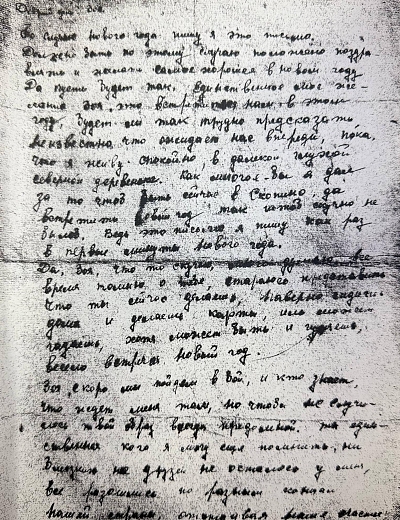 Добрый день Зоя.
По случаю нового года пишу я это письмо,
Должно быть по этому случаю положено поздра
вить и желать самое хорошее в новом году
Да пусть будет так, единственное мое же-
лание Зоя, это встретиться нам в этом
году, будет ли так трудно предсказать,
неизвестно что ожидает нас впереди, пока,
что я живу спокойно, в далекой глухой
северной деревеньке. Как много бы я дал
за то чтоб быть сейчас в Скопино, да
встретить новый год так чтоб скучно не
было. Ведь это письмо я пишу как раз
в первые минуты нового года.
Да, Зоя, что то скучно, все
время помню о тебе, стараюсь представить
что ты сейчас делаешь, наверно сидишь
дома и делаешь карты, или может
гадаешь, хотя может быть и гуляешь,
весело встречая новый год.
Зоя скоро мы пойдем в бой, и кто знает,
что ждет меня там, но чтобы не случи-
лось твой образ всегда предо мной. ты един-
ственная кого я могу еще помнить, ни
близких не друзей не осталось у меня,
все разошлись по разным концам
нашей страны, отстаивая наше счастье